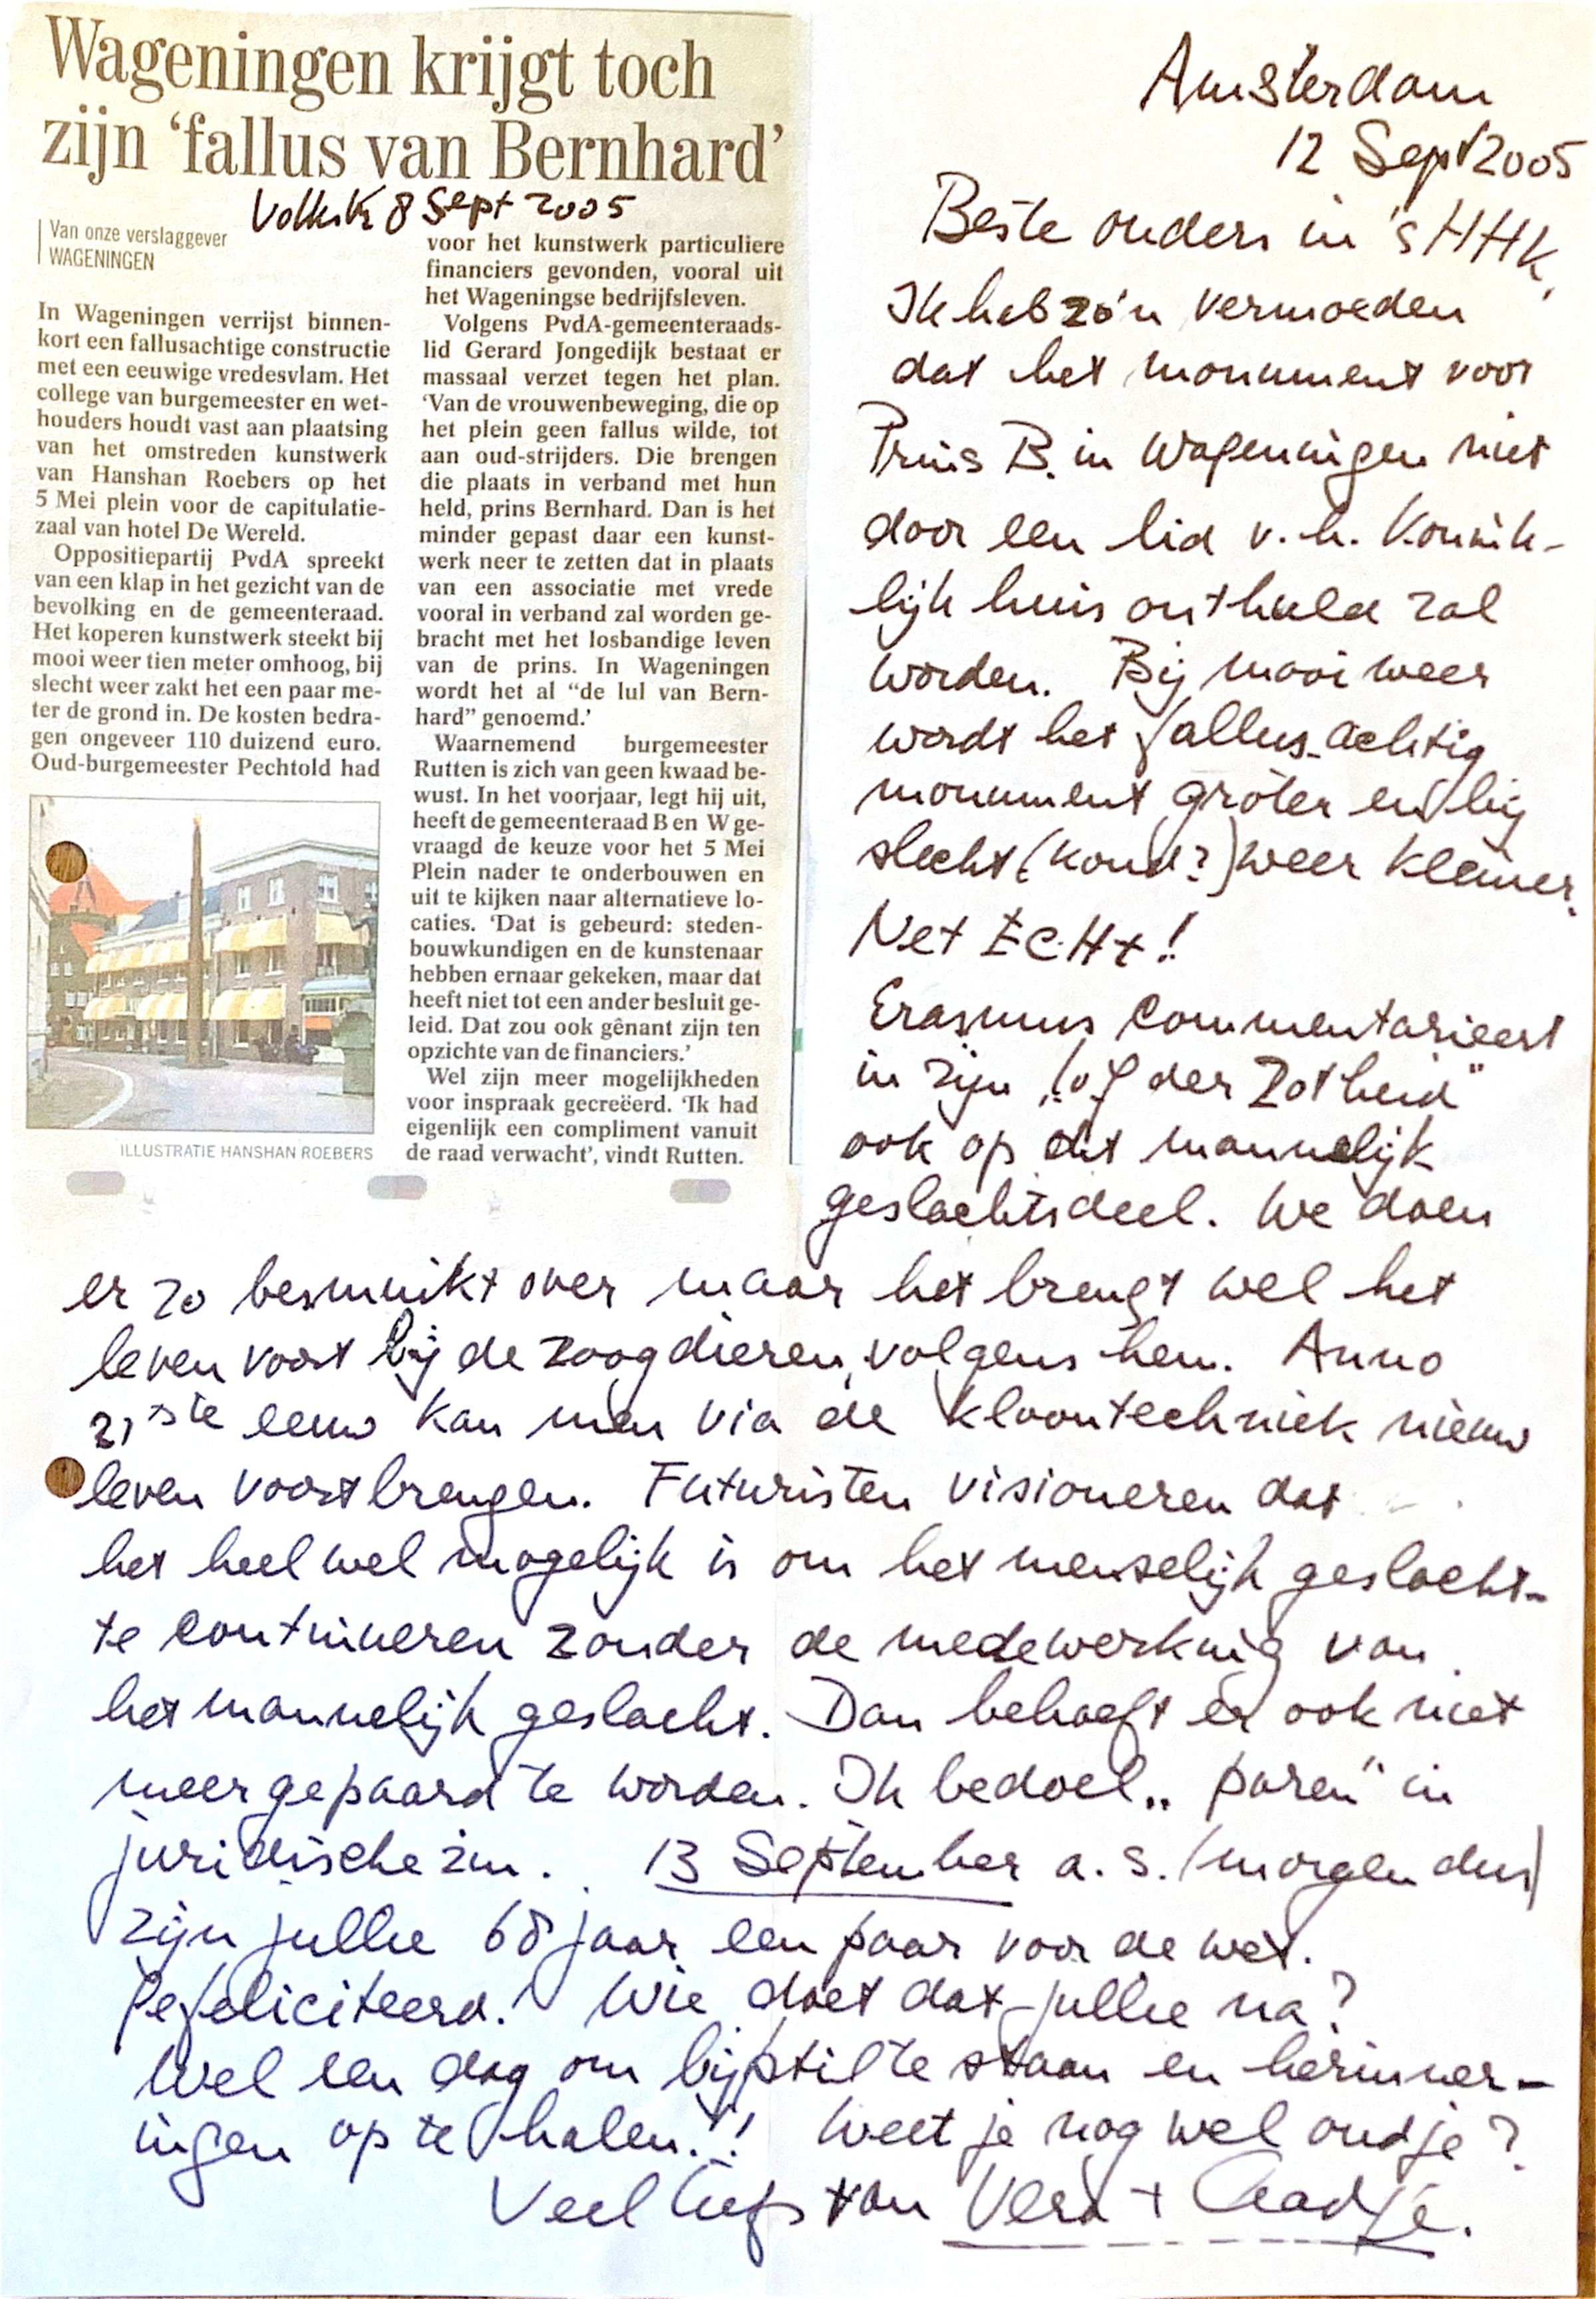 Wageningen krijgt toch
zijn ‘fallus van Bernhard’
Volksk 8 Sept 2005
Van onze verslaggever
WAGENINGEN
In Wageningen verrijst binnen-
kort een fallusachtige constructie
met een eeuwige vredesvlam. Het
college van burgemeester en wet-
houders houdt vast aan plaatsing
van het omstreden kunstwerk
van Hanshan Roebers op het
5 Mei plein voor de capitulatie-
zaal van hotel De Wereld.
Oppositiepartij PvdA spreekt
van een klap in het gezicht van de
bevolking en de gemeenteraad.
Het koperen kunstwerk steekt bij
mooi weer tien meter omhoog, bij
slecht weer zakt het een paar me-
ter de grond in. De kosten bedra-
gen ongeveer 110 duizend euro.
Oud-burgemeester Pechtold had
voor het kunstwerk particuliere
financiers gevonden, vooral uit
het Wageningse bedrijfsleven.
Volgens PvdA-gemeenteraads-
lid Gerard Jongedijk bestaat er
massaal verzet tegen het plan.
‘Van de vrouwenbeweging, die op
het plein geen fallus wilde, tot
aan oud-strijders. Die brengen
die plaats in verband met hun
held, prins Bernhard. Dan is het
minder gepast daar een kunst-
werk neer te zetten dat in plaats
van een associatie met vrede
vooral in verband zal worden ge-
bracht met het losbandige leven
van de prins. In Wageningen
wordt het al “de lul van Bern-
hard” genoemd.’
Waarnemend burgemeester
Rutten is zich van geen kwaad be-
wust. In het voorjaar, legt hij uit,
heeft de gemeenteraad B en W ge-
vraagd de keuze voor het 5 Mei
Plein nader te onderbouwen en
uit te kijken naar alternatieve lo-
caties. ‘Dat is gebeurd: steden-
bouwkundigen en de kunstenaar
hebben ernaar gekeken, maar dat
heeft niet tot een ander besluit ge-
leid. Dat zou ook gênant zijn ten
opzichte van de financiers.’
Wel zijn meer mogelijkheden
voor inspraak gecreëerd. ‘Ik had
eigenlijk een compliment vanuit
de raad verwacht’, vindt Rutten.
ILLUSTRATIE HANSHAN ROEBERS
Amsterdam
12 Sept 2005
Beste ouders in 's HHK,
Ik heb zo'n vermoeden
dat het monument voor
Prins B. in Wageningen niet
door een lid v.h. Konink-
lijk huis onthuld zal
worden. Bij mooi weer
wordt het fallus-achtig
monument groter en bij
slecht (koud?) weer kleiner.
Net ECHt!
Erasmus commentarieert
in zijn „lof der Zotheid”
ook op dit mannelijk
geslachtsdeel. We doen
er zo besmuikt over maar het brengt wel het
leven voort bij de zoogdieren, volgens hem. Anno
21ste eeuw kan men via de kloontechniek nieuw
leven voortbrengen. Futuristen visioneren dat
het heel wel mogelijk is om het menselijk geslacht-
te continueren zonder de medewerking van
het mannelijk geslacht. Dan behoeft er ook niet
meer gepaard te worden. Ik bedoel „paren” in
juridische zin. 13 September a.s. (morgen dus)
zijn jullie 68 jaar een paar voor de wet.
Gefeliciteerd! Wie doet dat jullie na?
Wel een dag om bij stil te staan en herinner-
ingen op te halen.!! Weet je nog wel oudje?
Veel liefs van Vera + Aadje.